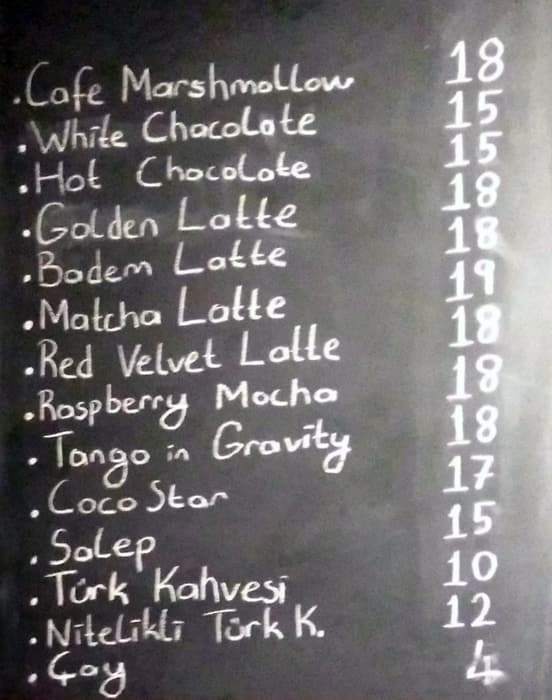 .Cafe Marshmallow 18
.White Chocolate 15
.Hot Chocolate 15
.Golden Latte 18
.Badem Latte 18
.Matcha Latte 19
.Red Velvet Latte 18
.Raspberry Mocha 18
.Tango in Gravity 18
.Coco Star 17
.Salep 15
.Türk Kahvesi 10
.Nitelikli Türk K. 12
.Çay 4